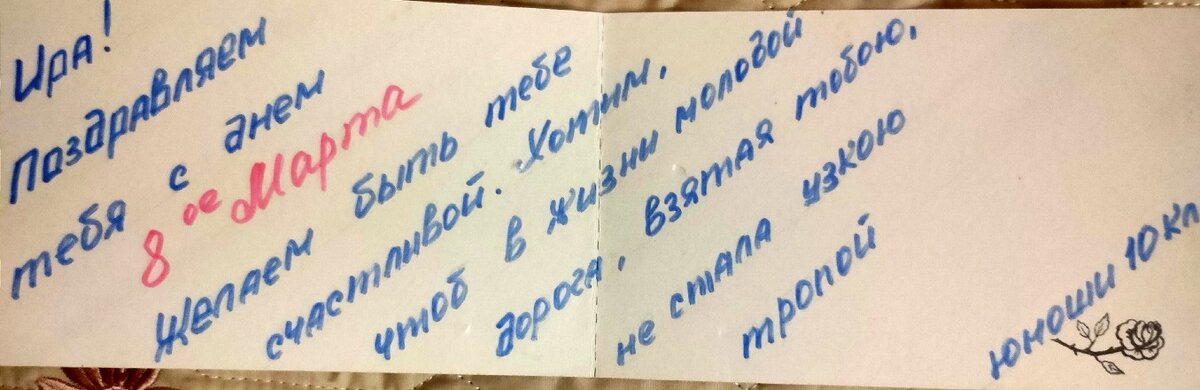 Ира!
Поздравляем
тебя с днем
8 ое Марта
Желаем быть тебе
счастливой. Хотим,
чтоб в жизни молодой
дорога, взятая тобою,
не стала узкою
тропой
юноши 10 кл